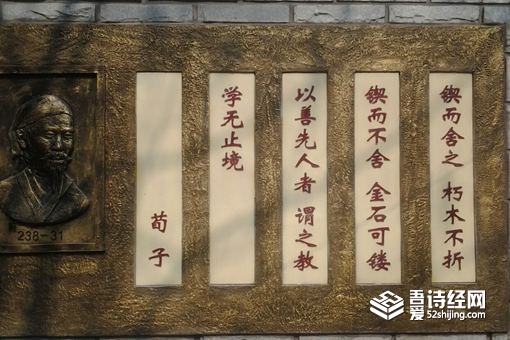 锲而舍之 朽木不折
锲而不舍 金石可镂
以善先人者 谓之教
学无止境
荀子
238-31
吾爱诗经网
52shijing.com